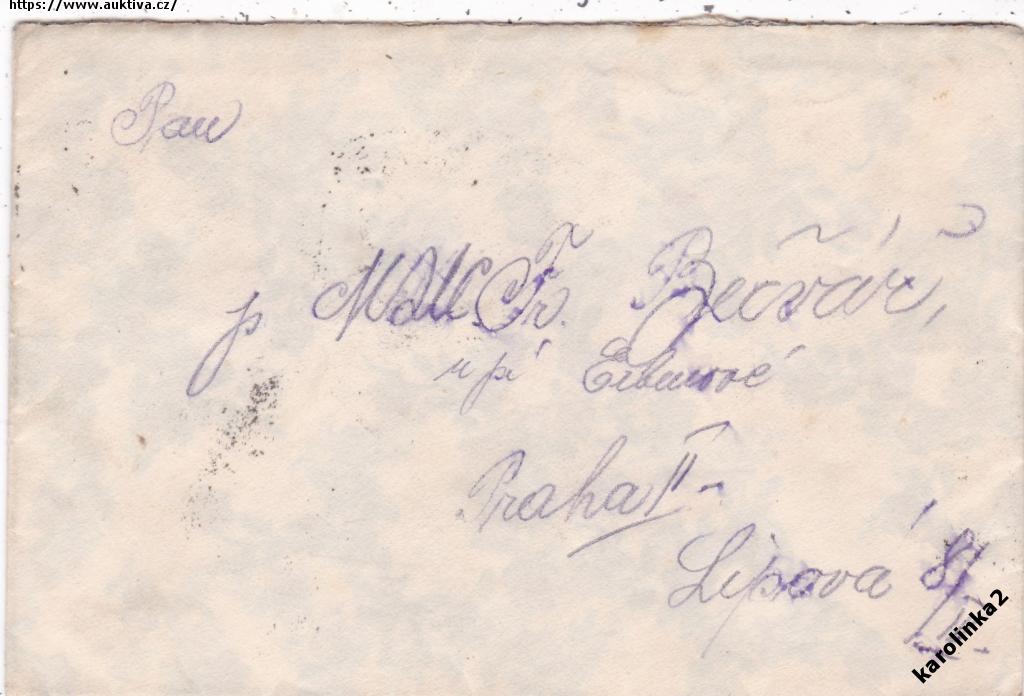 https://www.auktiva.cz/
Pan
p. MUC. Fr. Bečvář,
u pí
Praha II-
Lipová 8/II
karolinka2